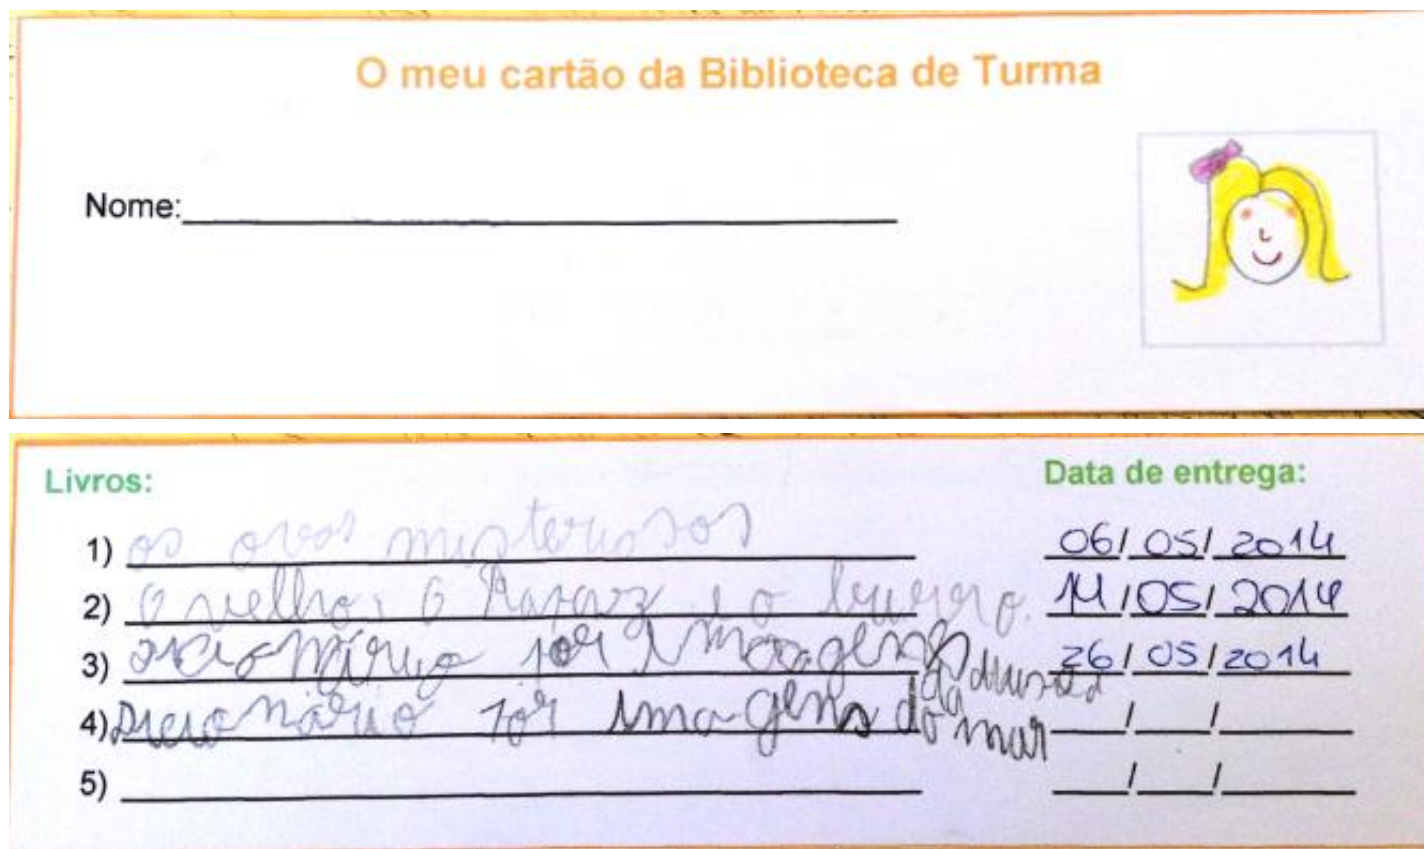 O meu cartão da Biblioteca de Turma
Nome:
Livros:
Data de entrega:
1) os ovos misteriosos 06/05/2014
2) O velho, O Rapaz e o burro. /05/2014
3) por Imagens 26/05/2014
4) Dicionário por imagens do mar / /
5) / /